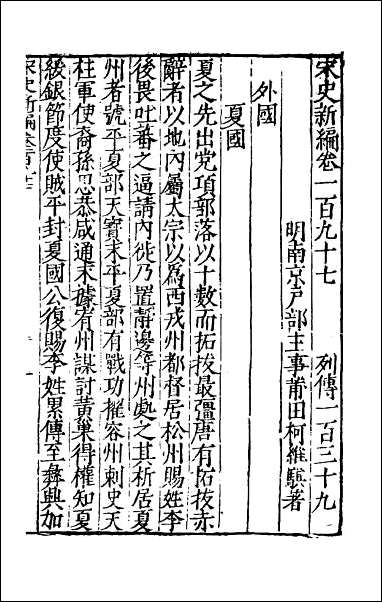 宋史新編卷一百九十七 列傳一百三十九
明南京戶部主事莆田柯維騏著
外國
夏國
夏之先出党項部落以十數而拓拔最彊唐有拓拔赤
辭者以地內屬太宗以爲西戎州都督居松州賜姓李
後畏吐蕃之逼請內徙乃置靜邊等州處之其析居夏
州者號平夏部天寶末平夏部有戰功擢容州刺史天
柱軍使裔孫思恭咸通末據宥州謀討黃巢得權知夏
綏銀節度使賊平封夏國公復賜李姓累傳至彝興加